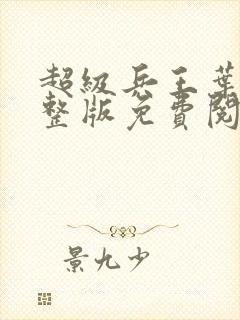 超级兵王葉
整版免费閱
景九少